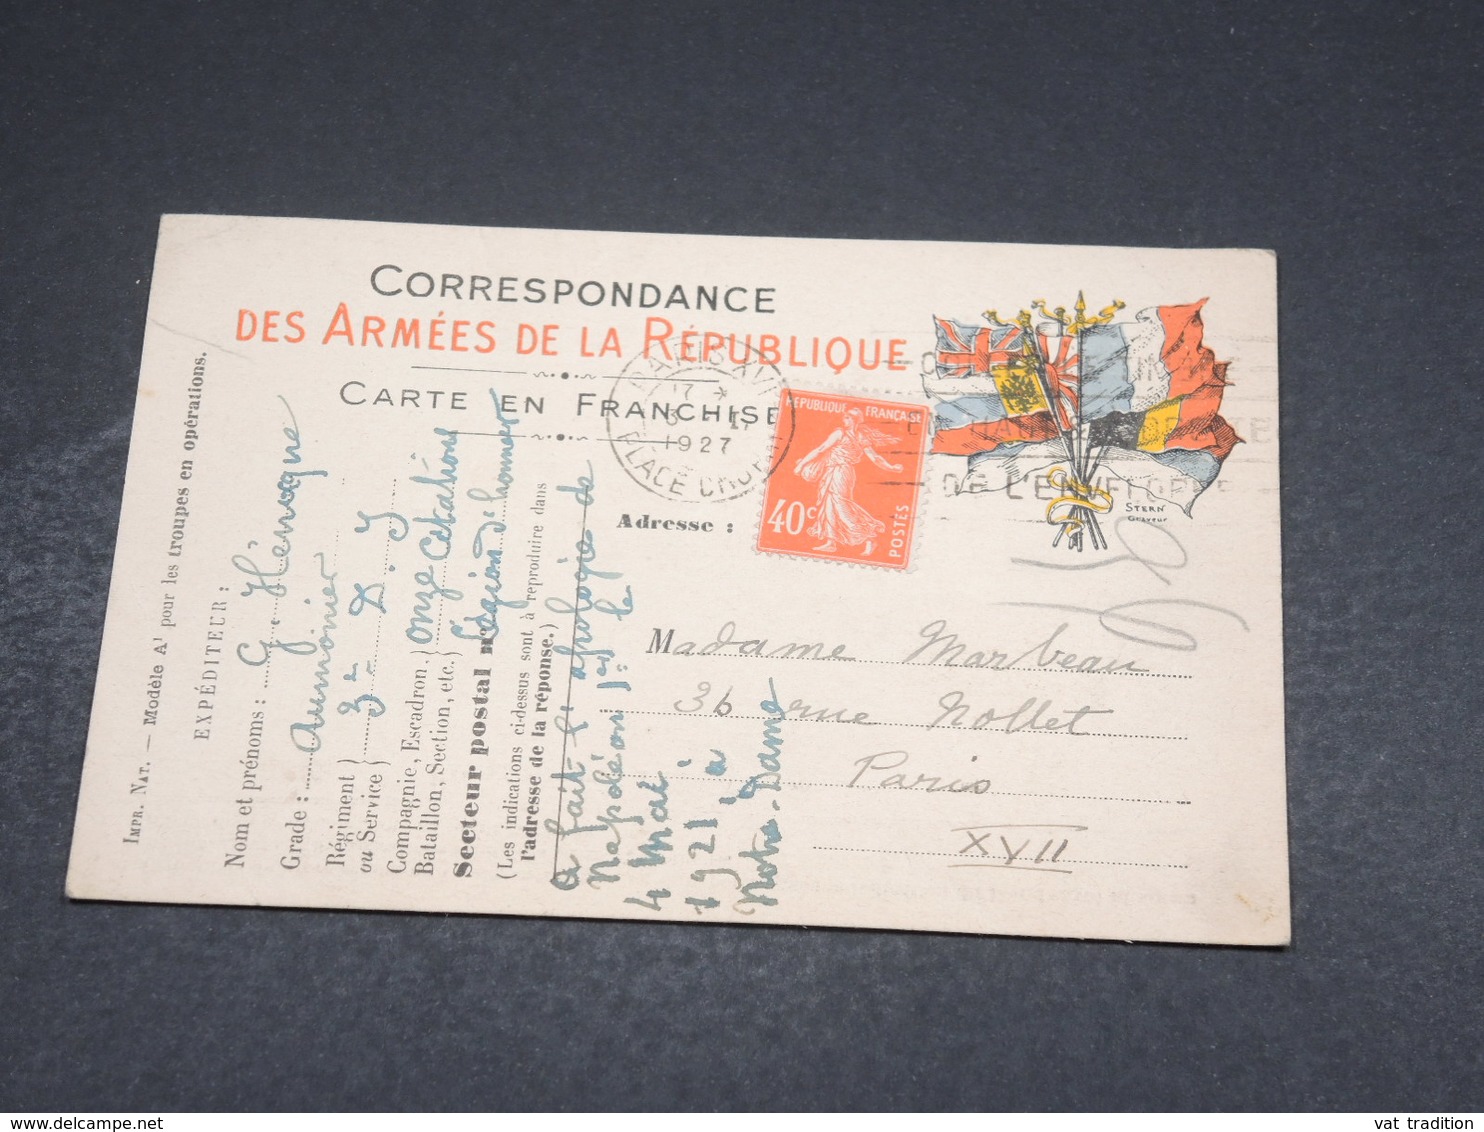 CORRESPONDANCE
DES ARMÉES DE LA RÉPUBLIQUE
CARTE EN FRANCHISE
PARIS XVII
17 *
1927
PLACE
RÉPUBLIQUE FRANÇAISE
40c
POSTES
DE L'ENVELOPPE
STERN
Graveur
Adresse :
Madame Marbeau
36 rue Nollet
Paris
XVII
IMPR. NAT. — Modèle A¹ pour les troupes en opérations.
EXPÉDITEUR :
Nom et prénoms : G. Hénocque
Grade : Aumônier
Régiment }
ou Service } 3e D. I
Compagnie, Escadron. } onze citations
Bataillon, Section, etc. } Légion d'honneur
Secteur postal n°
(Les indications ci-dessus sont à reproduire dans
l'adresse de la réponse.)
a fait l'apologie de
Napoléon 1er le
4 Mai
1921 à
Notre-Dame
delcampe.net
vat tradition